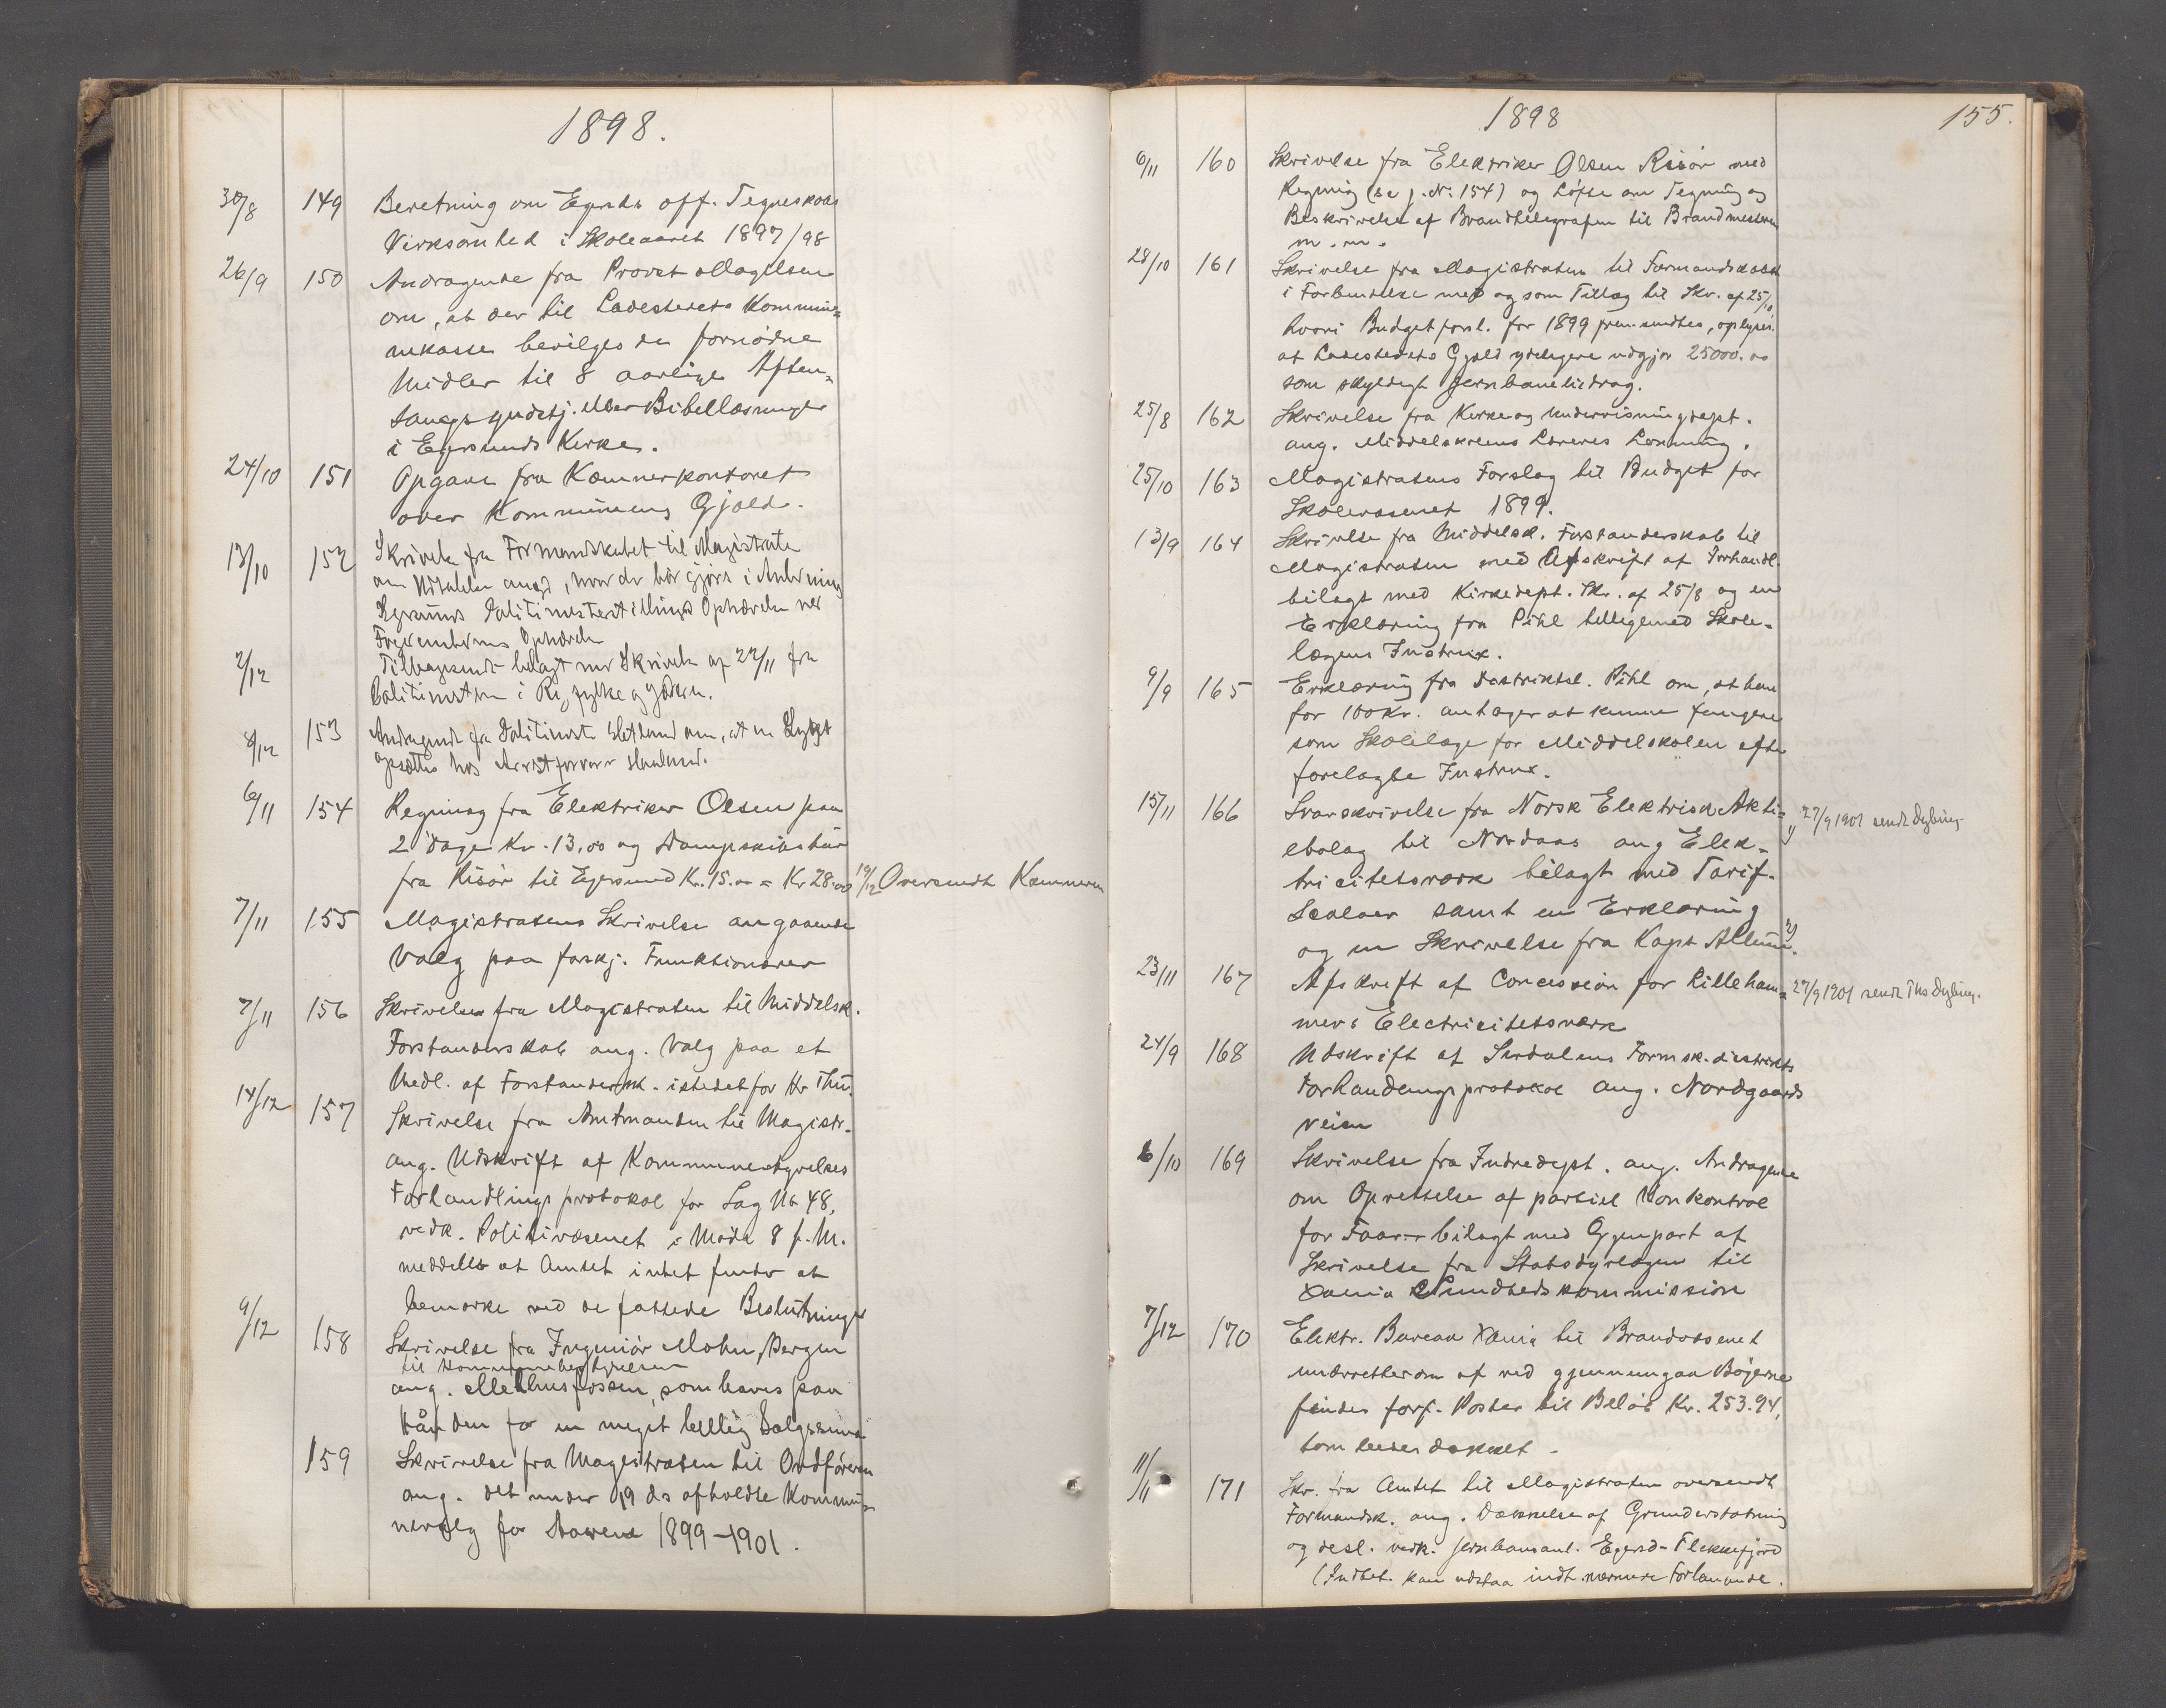 1898.
30/8 149 Beretning om Egersds off. Tegneskoles
Virksomhed i Skoleaaret 1897/98
26/9 150 Andragende fra Provst Magelsen
om, at der til Ladestedets Kommu-
nekasse bevilges de fornödne
Midler til 8 aarlige Aften-
sangsgudstj. eller Bibellæsninger
i Egersunds Kirke.
24/10 151 Opgave fra Kæmnerkontoret
over Kommunens Gjæld.
13/10 152 Skrivelse fra Formandskabet til Magistraten
om Udtalelse angd, hvad der bör gjöres i Anledning
Politimesterstillings Ophævelse ved
Ophævelse
2/12 Tilbagesendt bilagt med Skrivelse af 22/11 fra
Politimesteren i Ryfylke og Jæderen.
8/12 153 Andragende fra Politimester Hetland om, at en Lygt
opsættes hos Arrestforvarer Haaland.
6/11 154 Regning fra Elektriker Olsen paa
2 Dage Kr. 13,00 og Dampskibstur
fra Risör til Egersund Kr. 15.00 = Kr 28.00 19/12 Oversendt Kæmneren
7/11 155 Magistratens Skrivelse angaaende
Valg paa forskj. Funktionærer
7/11 156 Skrivelse fra Magistraten til Middelsk.
Forstanderskab ang. Valg paa et
Medl. af Forstandersk. istedetfor Hr Thu.
14/12 157 Skrivelse fra Amtmanden til Magistr.
ang. Udskrift af Kommunestyrelses
Forhandlingsprotokol for Sag No 48,
vedk. Politivæsenet i Möde 8 f. M.
meddeles at Amtet intet finder at
bemærke ved de fattede Beslutninger
9/12 158 Skrivelse fra Ingeniör Mohn, Bergen
til Kommunebestyrelsen
ang. Melhusfossen, som haves paa
Hånden for en meget billig Salgssum
159 Skrivelse fra Magistraten til Ordföreren
ang. det under 19 ds afholdte Kommu-
nevalg for Aarene 1899-1901.
1898
155.
6/11 160 Skrivelse fra Elektriker Olsen Risör med
Regning (se j. No. 154) og Löfte om Tegning og
Beskrivelse af Brandtelegrafen til Brandmesteren
m. m.
28/10 161 Skrivelse fra Magistraten til Formandskabet
i Forbindelse med og som Tillæg til Skr. af 25/10,
hvori Budgetforsl. for 1899 fremsendtes, oplyses.
at Ladestedets Gjæld yderligere udgjör 25000.00
som skyldigt Jernbanebidrag.
25/8 162 Skrivelse fra Kirke og Undervisningsdept.
ang. Middelskolens Læreres Lönning.
25/10 163 Magistratens Forslag til Budget for
Skolevæsenet 1899.
13/9 164 Skrivelse fra Middelsk. Forstanderskab til
Magistraten med Afskrift af Forhandl.
bilagt med Kirkedept. Skr. af 25/8 og en
Erklæring fra Pihl tilligemed Skole-
lægens Instrux.
9/9 165 Erklæring fra Distriktsl. Pihl om, at han
for 100 Kr. antager at kunne fungere
som Skolelæge for Middelskolen efter
forelagte Instrux.
15/11 166 Svarskrivelse fra Norsk Elektrisk Akti- 1) 27/9 1901 sendt Dybing
ebolag til Nordaas ang Elek-
tricitetsværk bilagt med Tarif-
Scalaer samt en Erklæring
og en Skrivelse fra Kapt Allum. 2)
23/11 167 Afskrift af Concession for Lilleham- 27/9 1901 sendt Ths Dybing.
mers Electricitetsværk
24/9 168 Udskrift af Sirdalens Formsk.distrikts
Forhandlingsprotokol ang. Nordgaards
veien
6/10 169 Skrivelse fra Indredept. ang. Andragende
om Oprettelse af partiel Kontrol
for Faar - bilagt med Gjenpart af
Skrivelse fra Statsdyrlægen til
Xania Sundhedskommission
7/12 170 Elektr. Bureau Xania til Brandvæsenet
underretter om at ved gjennemgaa Bögerne
findes forf. Poster til Belöb Kr. 253.94,
som bedes dækket.
11/11 171 Skr. fra Amtet til Magistraten oversendt
Formandsk. ang. Dækkelse af Grunderstatning
og desl. vedk. Jernbaneanl. Egersd-Flekkefjord
(Indbet. kan udstaa indt. nærmere Forlangende.